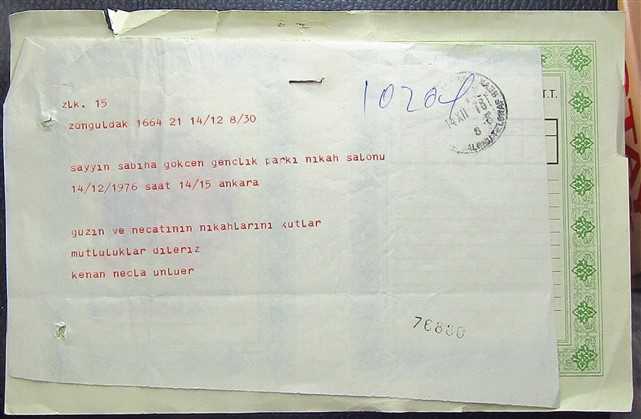 zlk. 15
zonguldak 1664 21 14/12 8/30
sayyin sabiha gokcen genclik parkı nıkah salonu
14/12/1976 saat 14/15 ankara
guzın ve necatının nıkahlarını kutlar
mutluluklar dılerız
kenan necla unluer
76880
T.T.